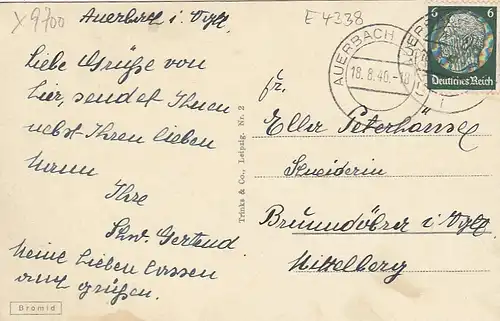 x 9700
Auerbach i. Vgtl.
E 4338
Liebe Grüße von
hier, sendet Ihnen
nebst Ihren lieben
Mann
Ihre
Schw. Gertrud.
Meine Lieben lassen
auch grüßen.
Bromid
Trinks & Co., Leipzig. Nr. 2
AUERBACH
18.8.40.-10
6
Deutsches Reich
Fr.
Ella Peterhänsel
Schneiderin
Brunndöbra i. Vgtl.
Mittelberg